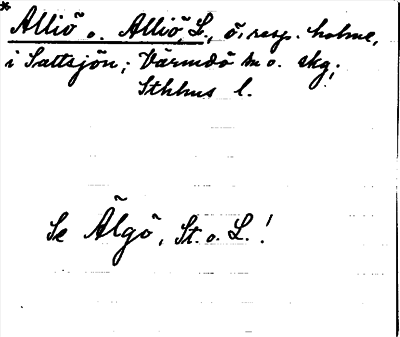 * Alliö o. Alliö L., ö, resp. holme,
i Saltsjön; Värmdö sn o. skg;
Sthlms l.
Se Älgö, St. o. L.!